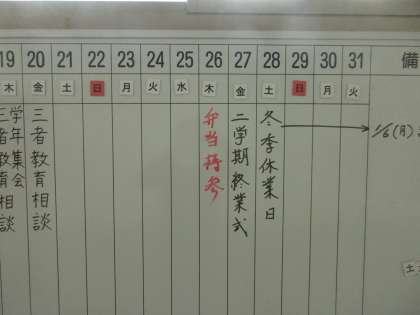 19 20 21 22 23 24 25 26 27 28 29 30 31 備
木 金 土 日 月 火 水 木 金 土 日 月 火
学年集会
三者教育相談
三者教育相談
弁当持参
二学期終業式
冬季休業日
1/6(月)
土